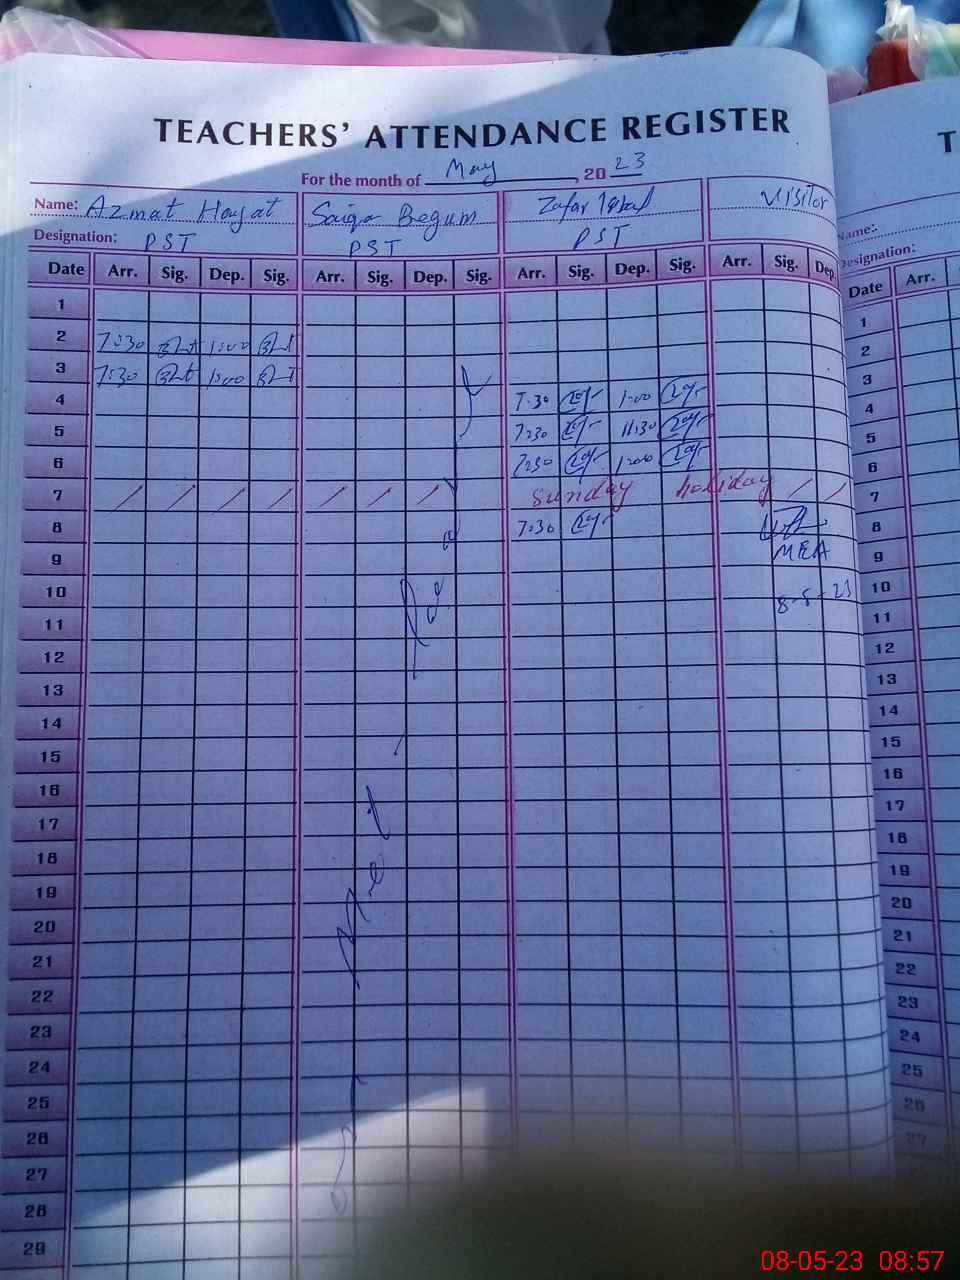 TEACHERS' ATTENDANCE REGISTER
For the month of May 2023
Name: Azmat Hayat Saiqa Begum Zafar Iqbal Visitor
Designation: PST PST PST
Date Arr. Sig. Dep. Sig. Arr. Sig. Dep. Sig. Arr. Sig. Dep. Sig. Arr. Sig. Dep.
1
2 7:30 1:00
3 7:30 1:00
4 7:30 1:00
5 7:30 11:30
6 7:30 1:00
7 Sunday holiday
8 7:30
9 MEA
10 8-5-23
11
12
13
14
15
16
17
18
19
20
21
22
23
24
25
26
27
28
29
T
Name:
Designation:
Date Arr.
1
2
3
4
5
6
7
8
9
10
11
12
13
14
15
16
17
18
19
20
21
22
23
24
25
26
27
08-05-23 08:57